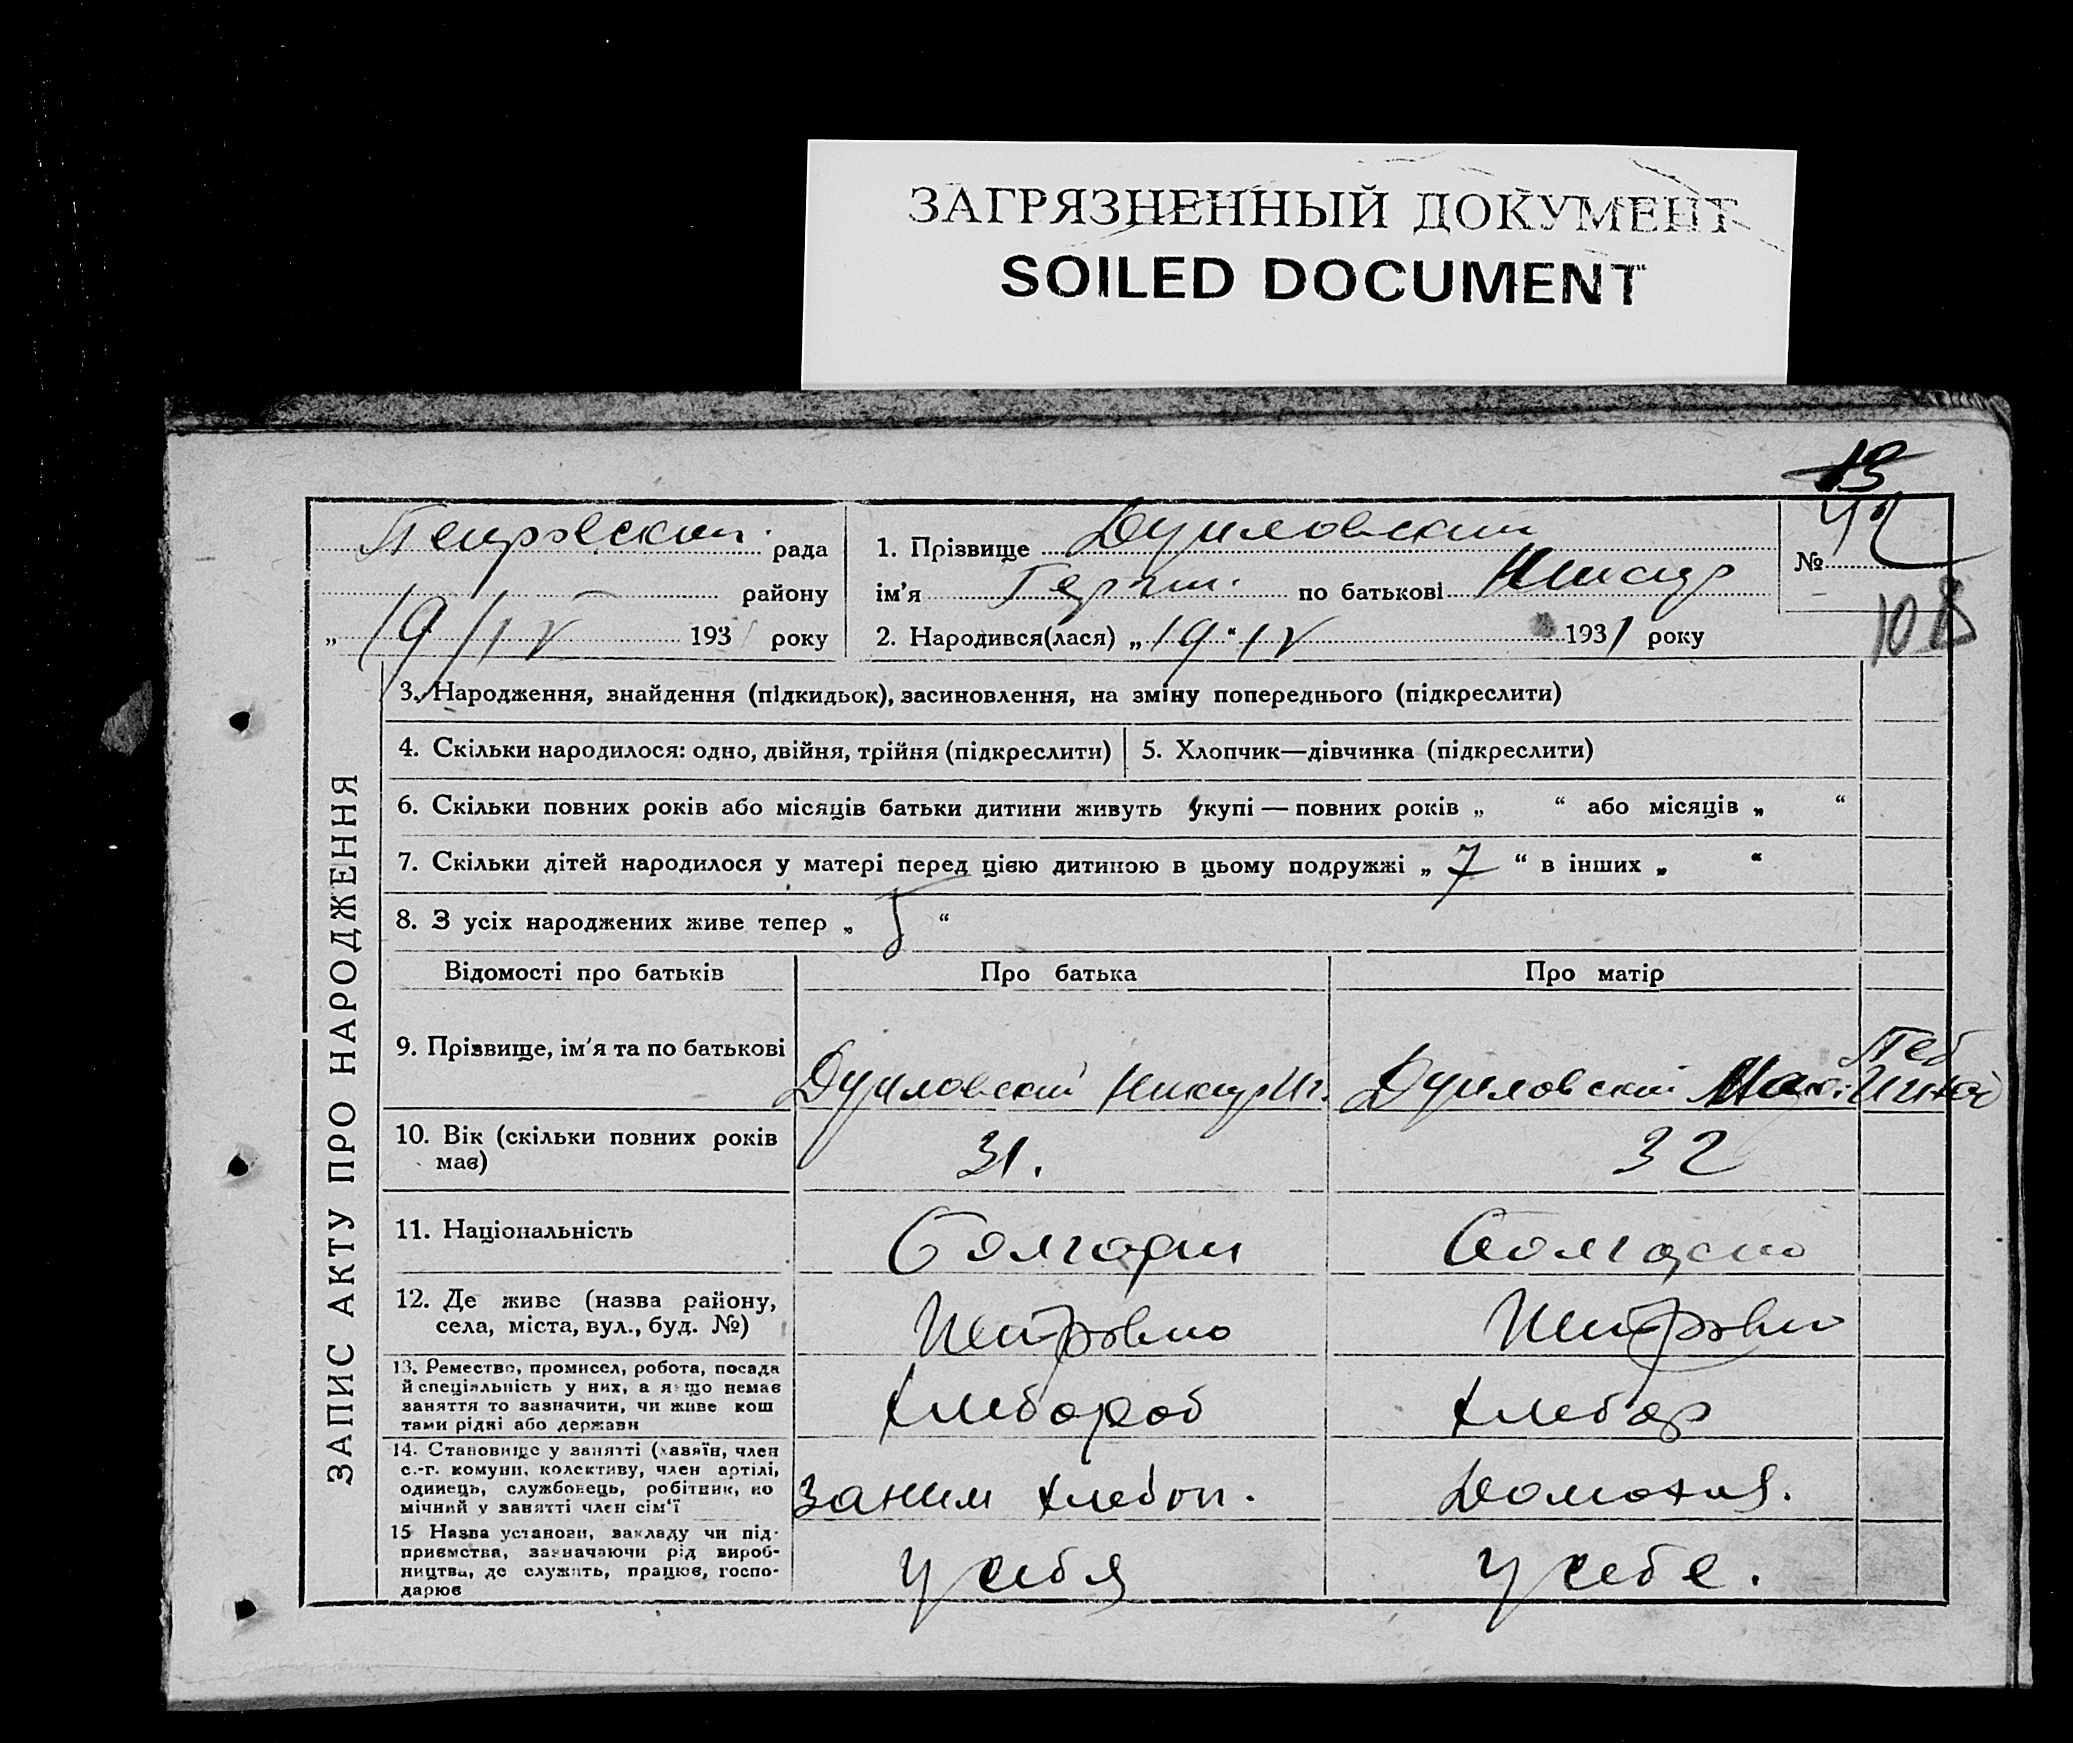 ЗАГРЯЗНЕННЫЙ ДОКУМЕНТ
SOILED DOCUMENT
13
рада
району
„ 19/IV 193 року
1. Прізвище Дуиловский
ім'я по батькові
2. Народився(лася) „19“ IV 1931 року
№ 42
108
ЗАПИС АКТУ ПРО НАРОДЖЕННЯ
3. Народження, знайдення (підкидьок), засиновлення, на зміну попереднього (підкреслити)
4. Скільки народилося: одно, двійня, трійня (підкреслити)
5. Хлопчик—дівчинка (підкреслити)
6. Скільки повних років або місяців батьки дитини живуть укупі — повних років „ “ або місяців „ “
7. Скільки дітей народилося у матері перед цією дитиною в цьому подружжі „ 7 “ в інших „ “
8. З усіх народжених живе тепер „ 5 “
Відомості про батьків
Про батька
Про матір
9. Прізвище, ім'я та по батькові
Дуиловский
Дуиловский
10. Вік (скільки повних років
має)
31.
32
11. Національність
Болгарин
12. Де живе (назва району,
села, міста, вул., буд. №)
Петровка
Петровка
13. Ремество, промисел, робота, посада
й спеціяльність у них, а якщо немає
заняття то зазначити, чи живе кош
тами рідні або держави
хлебороб
хлебор
14. Становище у занятті (хазяїн, член
с.-г. комуни, колективу, член артілі,
одинець, службовець, робітник, по
мічний у занятті член сім'ї
заним хлебоп.
Домохоз.
15 Назва установи, закладу чи під-
приємства, зазначаючи рід вироб-
ництва, де служить, працює, госпо-
дарює
у себя
у себе.